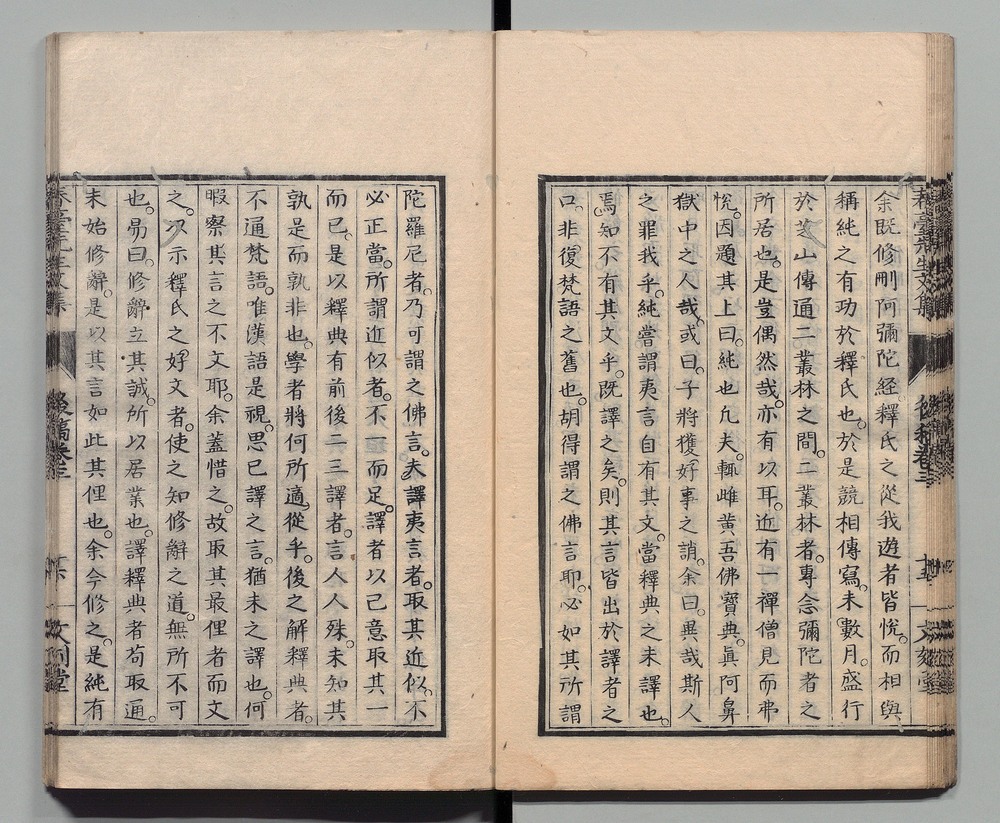 余既修刪阿彌陀經釋氏之從我遊者皆悅而相與
稱純之有功於釋氏也於是競相傳寫未數月盛行
於芝山傳通二叢林之間二叢林者專念彌陀者之
所居也是豈偶然哉亦有以耳近有一禪僧見而弗
悅因題其上曰純也凡夫輒雌黃吾佛寶典眞阿鼻
獄中之人哉或曰子將獲好事之誚余曰異哉斯人
之罪我乎純嘗謂夷言自有其文當釋典之未譯也
焉知不有其文乎既譯之矣則其言皆出於譯者之
口非復梵語之舊也胡得謂之佛言耶必如其所謂
陀羅尼者乃可謂之佛言夫譯夷言者取其近似不
必正當所謂近似者不一而足譯者以己意取其一
而已是以釋典有前後二三譯者言人人殊未知其
孰是而孰非也學者將何所適從乎後之解釋典者
不通梵語唯漢語是視思已譯之言猶未之譯也何
暇察其言之不文耶余蓋惜之故取其最俚者而文
之以示釋氏之好文者使之知修辭之道無所不可
也易曰修辭立其誠所以居業也譯釋典者苟取通
未始修辭是以其言如此其俚也余今修之是純有
春臺先生文集
後稿卷三